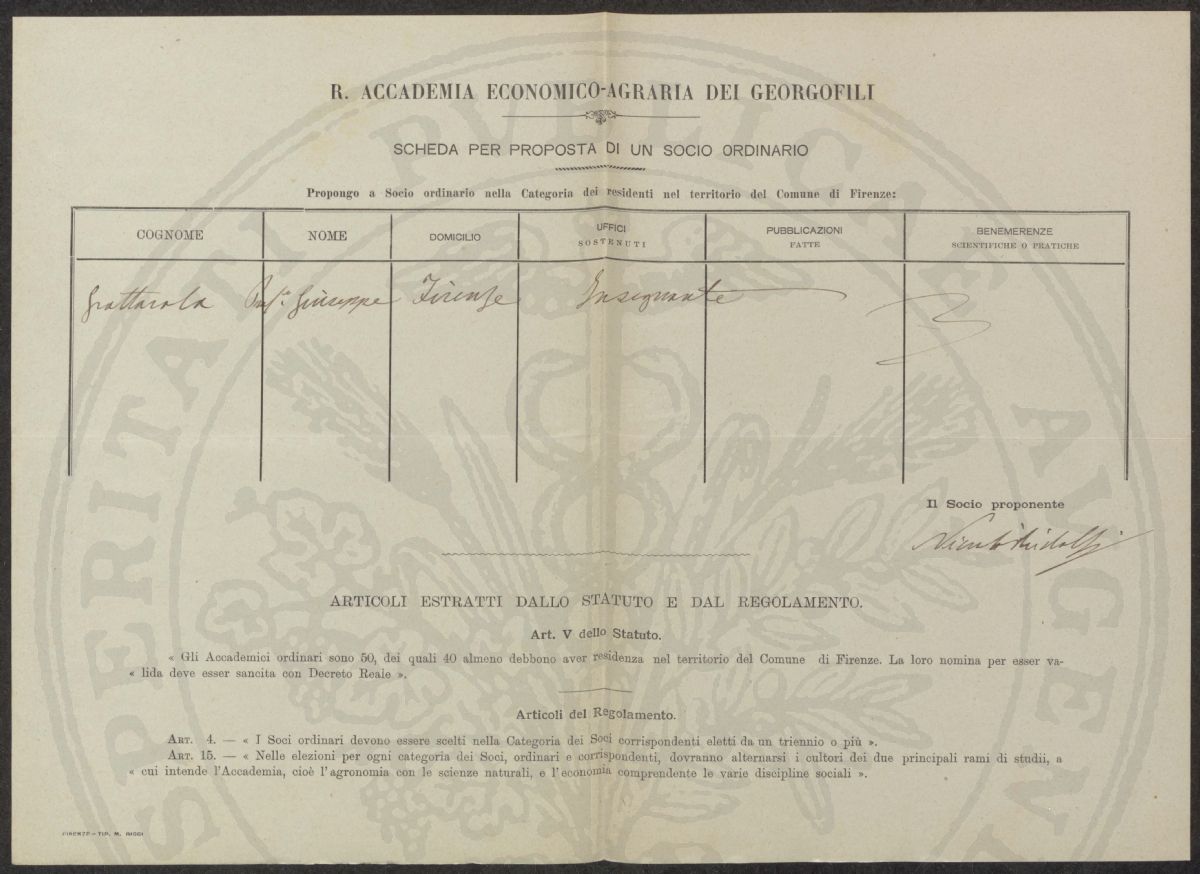 R. ACCADEMIA ECONOMICO-AGRARIA DEI GEORGOFILI
SCHEDA PER PROPOSTA DI UN SOCIO ORDINARIO
Propongo a Socio ordinario nella Categoria dei residenti nel territorio del Comune di Firenze:
COGNOME NOME DOMICILIO UFFICI SOSTENUTI PUBBLICAZIONI FATTE BENEMERENZE SCIENTIFICHE O PRATICHE
Grattarola Prof. Giuseppe Firenze Insegnante
Il Socio proponente
Niccolò Ridolfi
ARTICOLI ESTRATTI DALLO STATUTO E DAL REGOLAMENTO.
Art. V dello Statuto.
« Gli Accademici ordinari sono 50, dei quali 40 almeno debbono aver residenza nel territorio del Comune di Firenze. La loro nomina per esser va-
« lida deve esser sancita con Decreto Reale ».
Articoli del Regolamento.
ART. 4. — « I Soci ordinari devono essere scelti nella Categoria dei Soci corrispondenti eletti da un triennio o più ».
ART. 15. — « Nelle elezioni per ogni categoria dei Soci, ordinari e corrispondenti, dovranno alternarsi i cultori dei due principali rami di studii, a
« cui intende l'Accademia, cioè l'agronomia con le scienze naturali, e l'economia comprendente le varie discipline sociali ».
FIRENZE - TIP. M. RICCI
PROSPERITATI PUBLICAE AUGEN